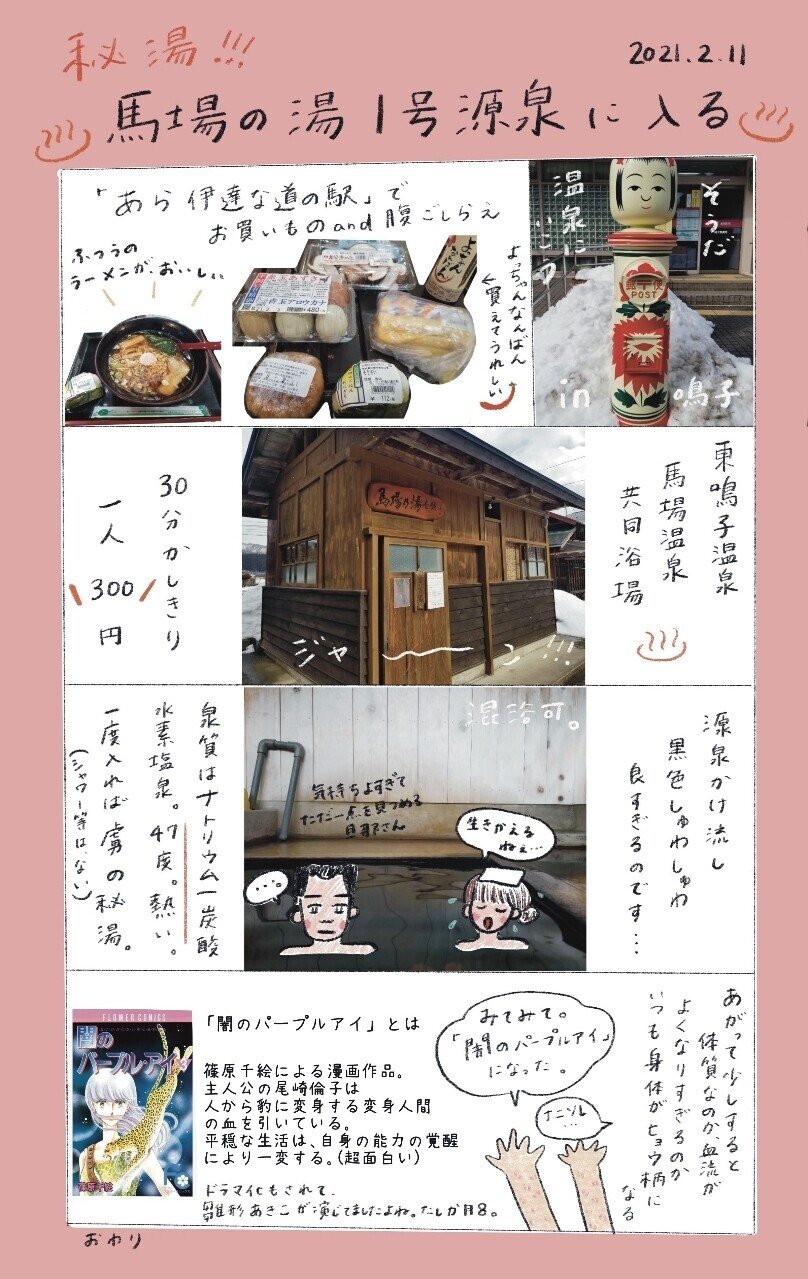 秘湯!!!
2021.2.11
馬場の湯1号源泉に入る
「あら伊達な道の駅」で
お買いものand腹ごしらえ
ふつうの
ラーメンが、おいしい
よっちゃんなんばん
←買えてうれしい
480
112
そうだ
温泉に
いこう
郵便
POST
in 鳴子
東鳴子温泉
馬場温泉
共同浴場
馬場の湯
ジャーーン!!!
30分かしきり
一人
300
円
源泉かけ流し
黒色しゅわしゅわ
良すぎるのです…
混浴可。
気持ちよすぎて
ただ一点を見つめる
旦那さん
…。
生きかえる
ねぇ…
泉質はナトリウムー炭酸
水素塩泉。47度。熱い。
一度入れば虜の秘湯。
(シャワー等はない)
あがって少しすると
体質なのか、血流が
よくなりすぎるのか
いつも身体がヒョウ柄に
なる
みてみて。
「闇のパープルアイ」
になった。
ナニソレ
…
FLOWER COMICS
闇の
パープル・アイ
篠原千絵
「闇のパープルアイ」とは
篠原千絵による漫画作品。
主人公の尾崎倫子は
人から豹に変身する変身人間
の血を引いている。
平穏な生活は、自身の能力の覚醒
により一変する。(超面白い)
ドラマ化もされて、
雛形あきこが演じてましたよね。たしか月8。
おわり